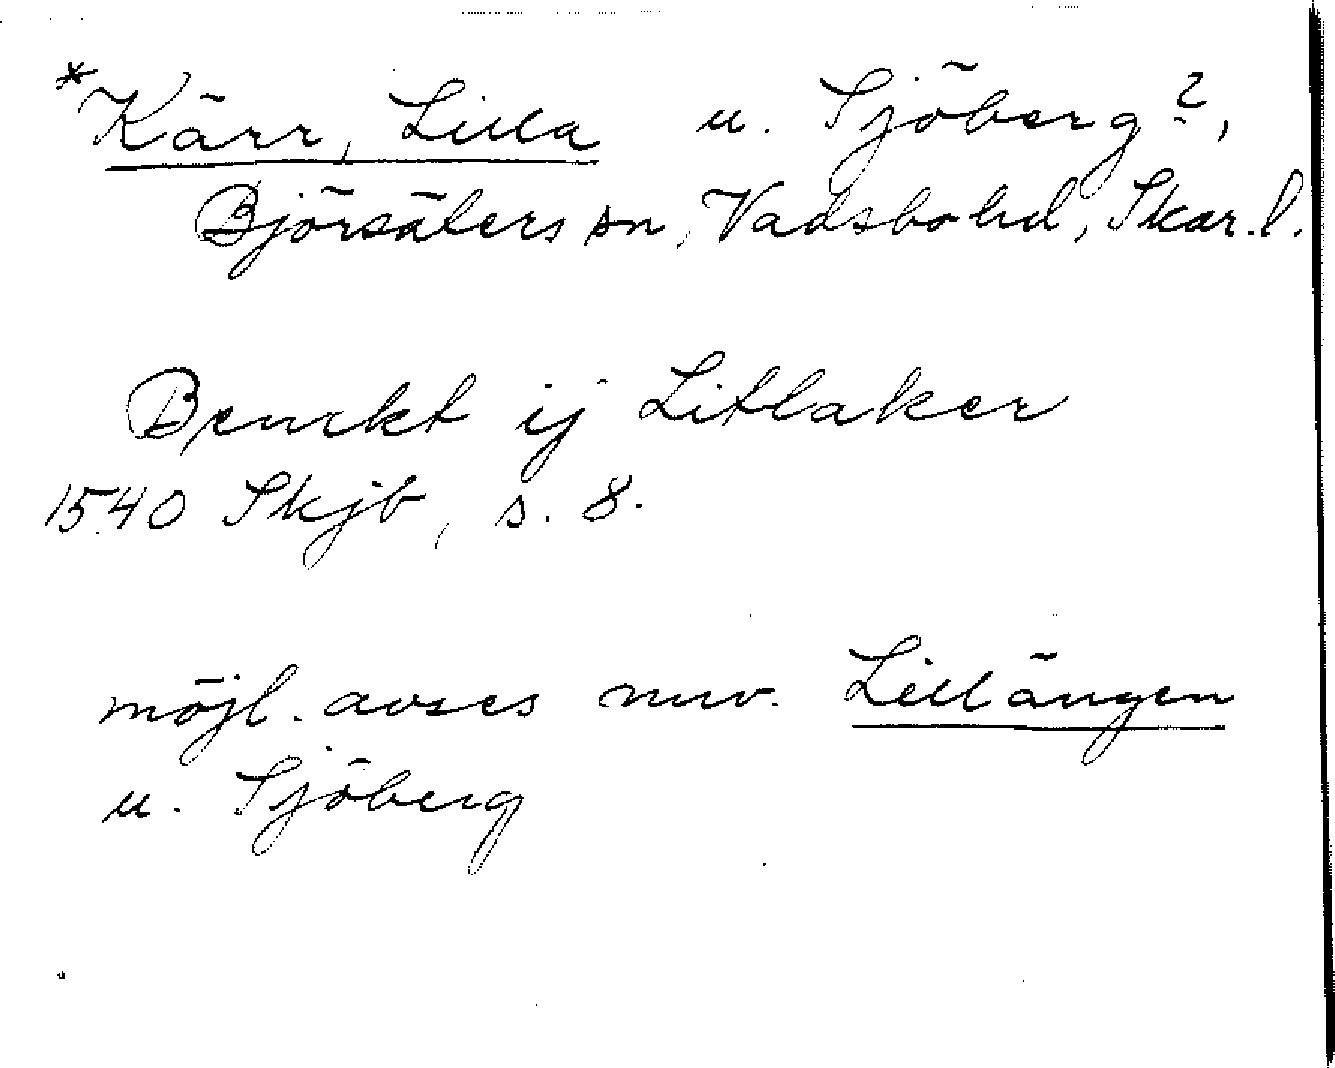 *Kärr, Lilla u. Sjöberg?,
Björsäters sn, Vadsbo hd, Skar. l.
Benckt ij Litlaker
1540 Skjb, s. 8.
möjl. avses nuv. Lillängen
u. Sjöberg